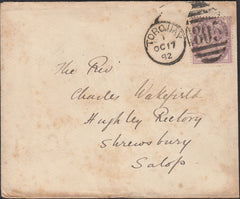 TORQUAY
OC 17
82
805
The Rev
Charles Wakefield
Hughley Rectory
Shrewsbury
Salop